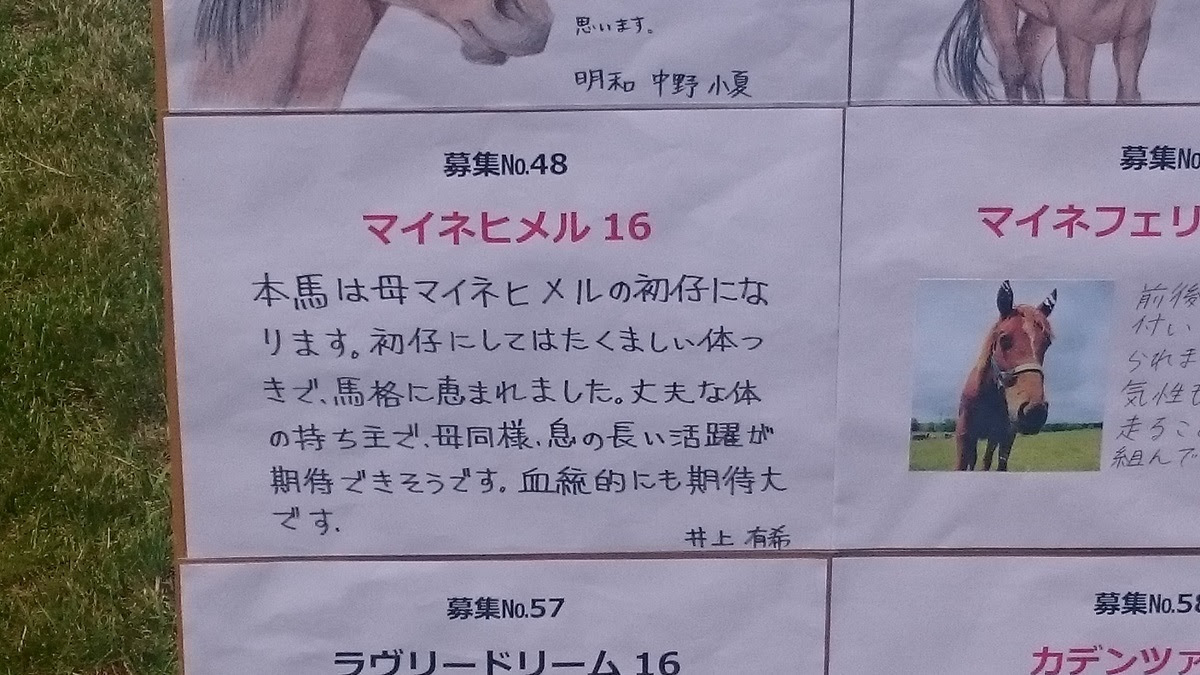 思います。
明和 中野 小夏
募集№48
マイネヒメル 16
本馬は母マイネヒメルの初仔にな
ります。初仔にしてはたくましい体つ
きで、馬格に恵まれました。丈夫な体
の持ち主で、母同様、息の長い活躍が
期待できそうです。血統的にも期待大
です.
井上 有希
募集№
マイネフェリ
前後
付い
られま
気性も
走るこ
組んで
募集№57
ラヴリードリーム 16
募集№58
カデンツァ